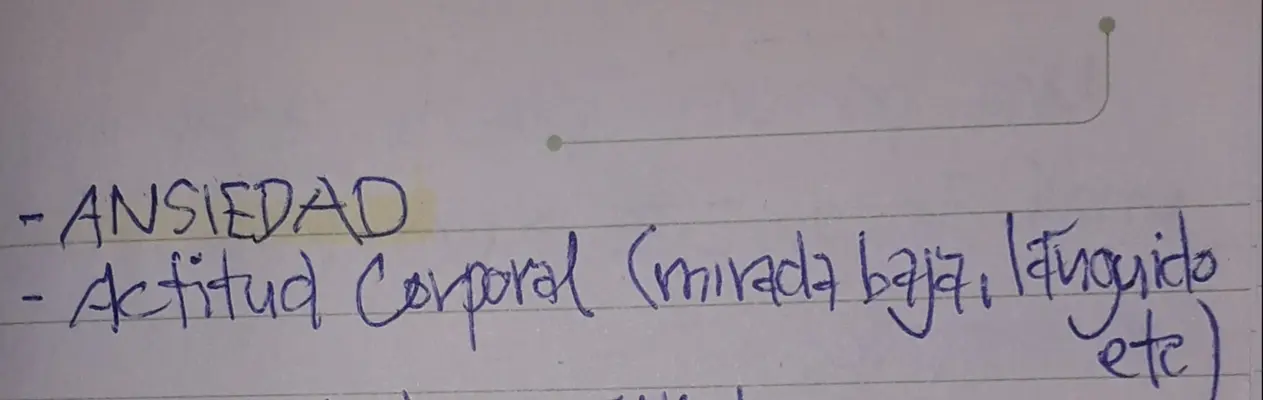 - ANSIEDAD
- Actitud Corporal (mirada baja, lánguido
etc)